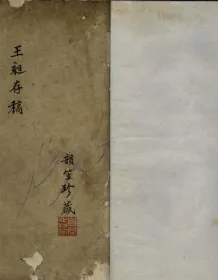 王昶存稿
韻笙珍藏